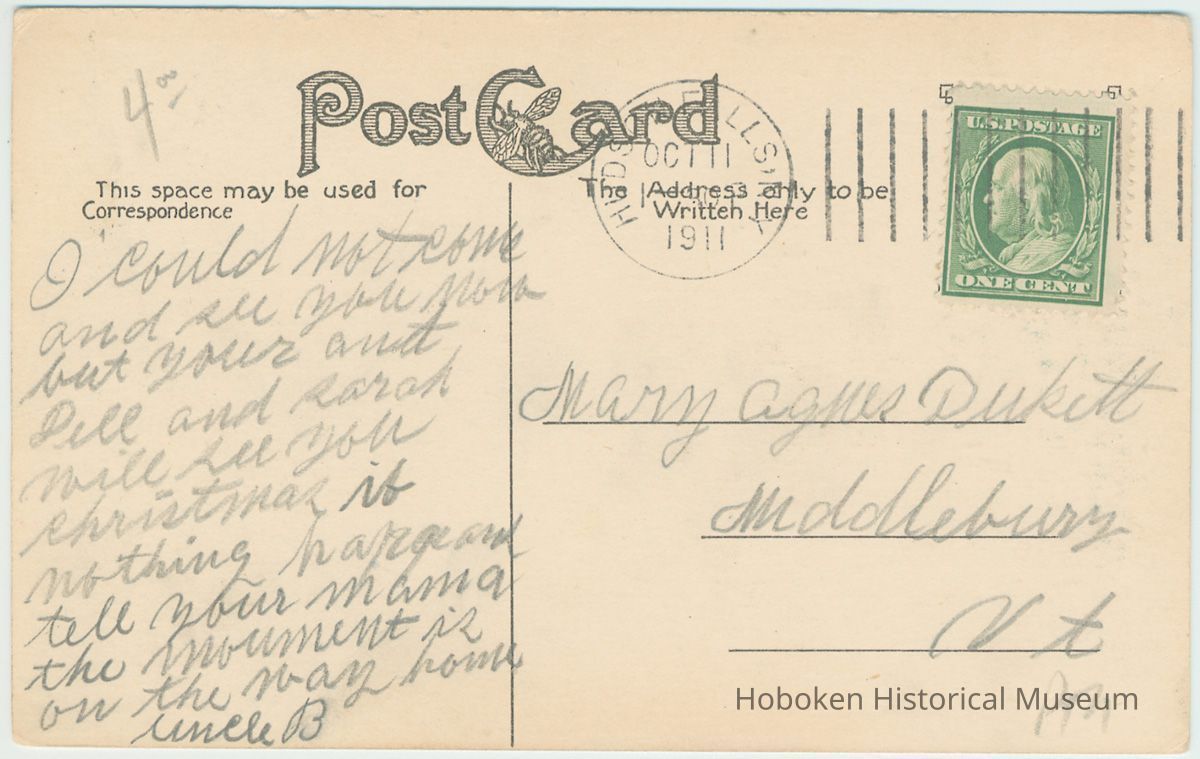 4
Post Card
HUDSON FALLS, N.Y.
OCT 11
1911
U.S. POSTAGE
ONE CENT
This space may be used for
Correspondence
The Address only to be
Written Here
I could not come
and see you now
but your ant
Dell and sarah
will see you
christmas if
nothing hapeand
tell your mama
the moument is
on the way home
uncle B
Mary agnes Dukett
Middlebury
Vt
Hoboken Historical Museum